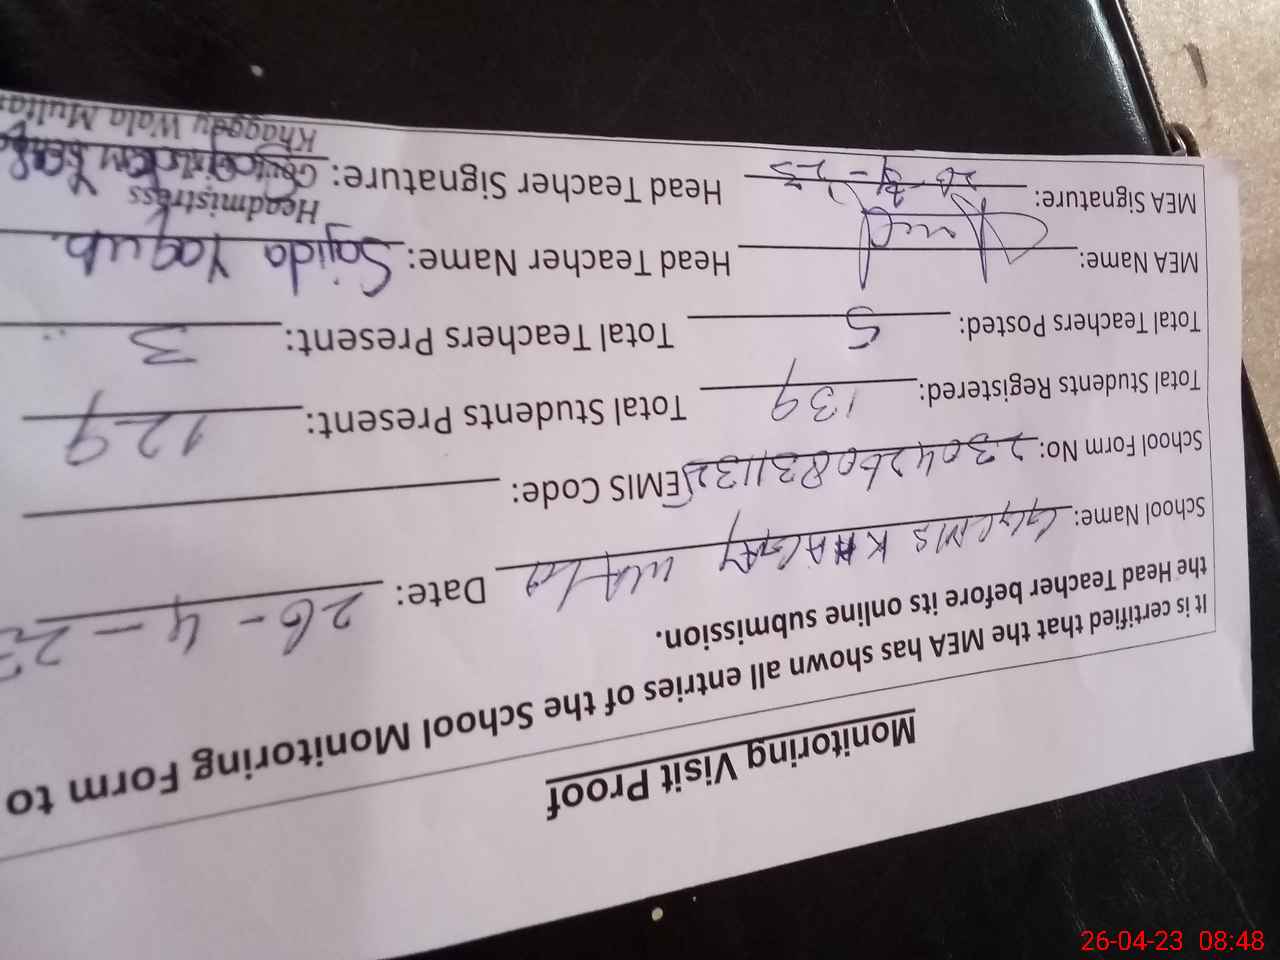 Monitoring Visit Proof
It is certified that the MEA has shown all entries of the School Monitoring Form to
the Head Teacher before its online submission.
School Name: Date: 26-4-23
School Form No: EMIS Code:
Total Students Registered: 139 Total Students Present: 129
Total Teachers Posted: 5 Total Teachers Present: 3
MEA Name: Head Teacher Name: Sajida Yaqub
MEA Signature: Head Teacher Signature:
Headmistress
Khaggay Wala Multan
26-04-23 08:48